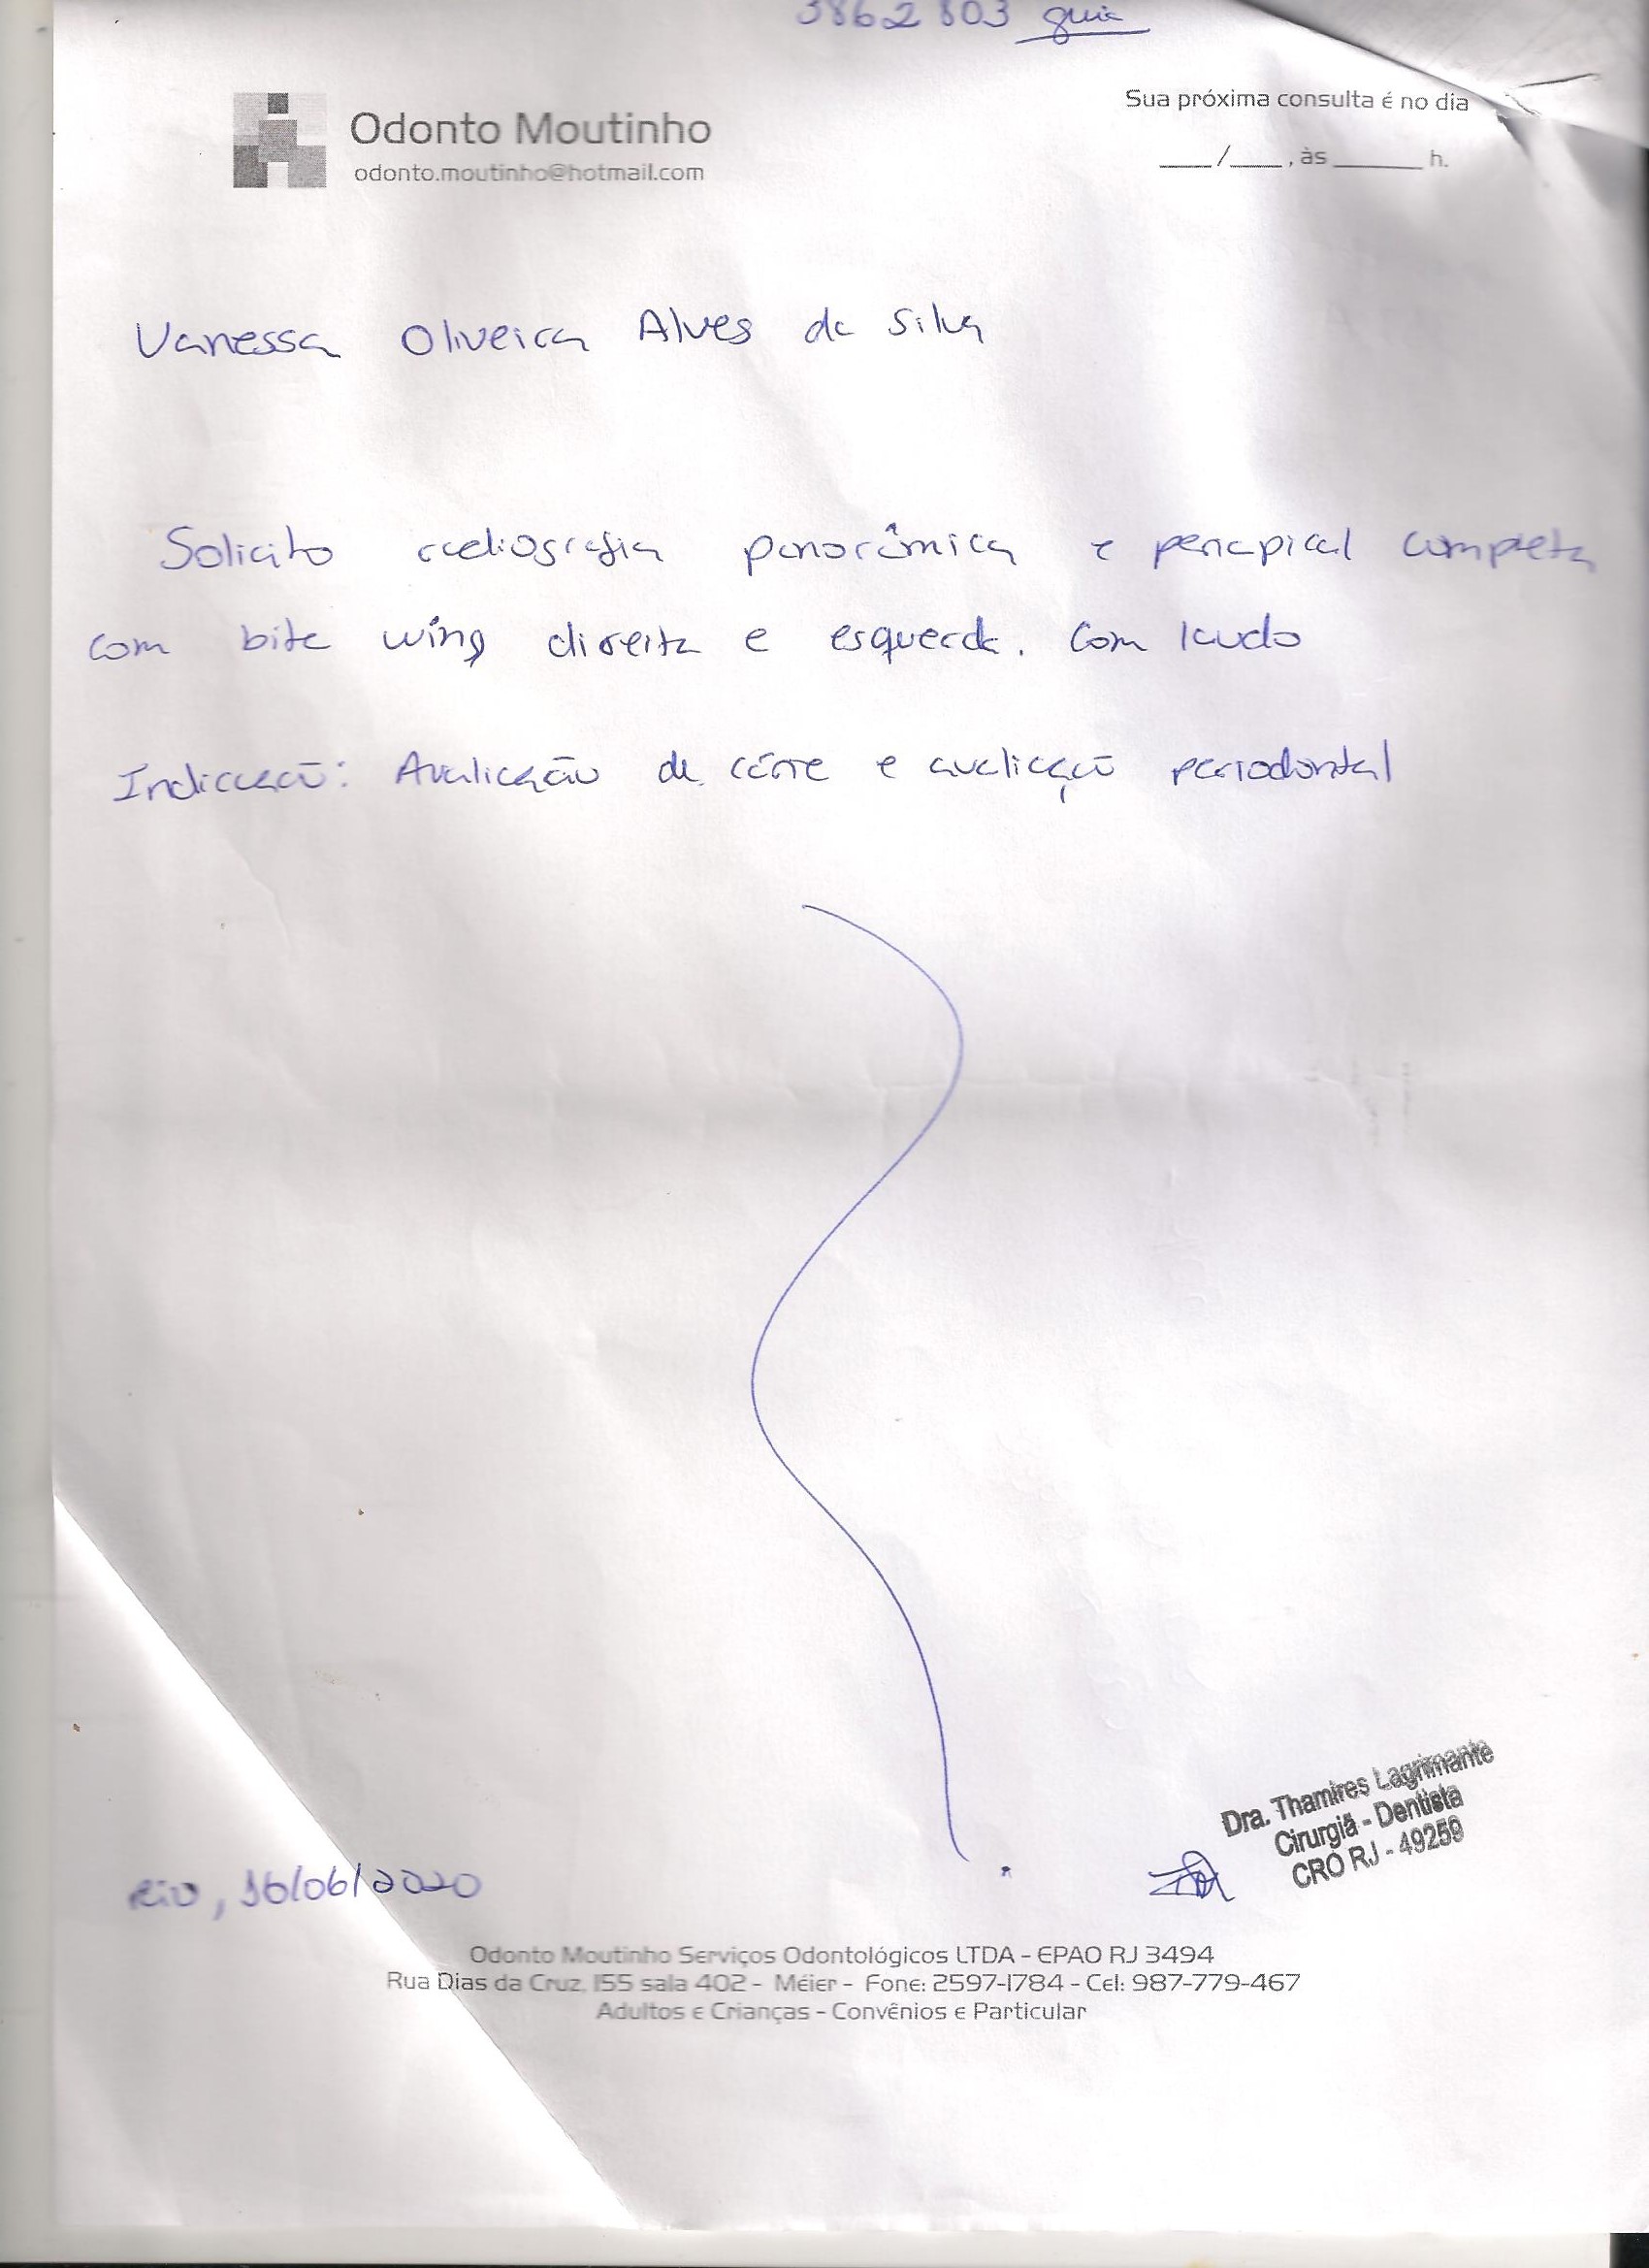 3862803 guia
Odonto Moutinho
odonto.moutinho@hotmail.com
Sua próxima consulta é no dia
___/___, às _____ h.
Vanessa Oliveira Alves da Silva
Solicito radiografia panorâmica e periapical completa
com bite wing direita e esquerda. Com laudo
Indicação: Avaliação de cárie e avaliação periodontal
Dra. Thamires Lagrimante
Cirurgiã - Dentista
CRO RJ - 49259
Rio, 16/06/2020
Odonto Moutinho Serviços Odontológicos LTDA - EPAO RJ 3494
Rua Dias da Cruz, 155 sala 402 - Méier - Fone: 2597-1784 - Cel: 987-779-467
Adultos e Crianças - Convênios e Particular